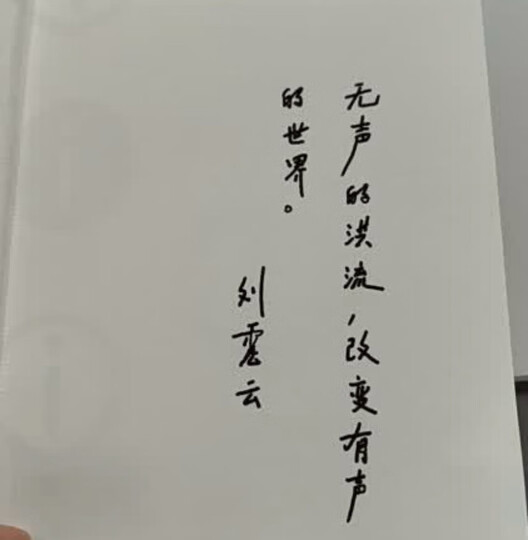 无声的洪流,改变有声
的世界。
刘震云